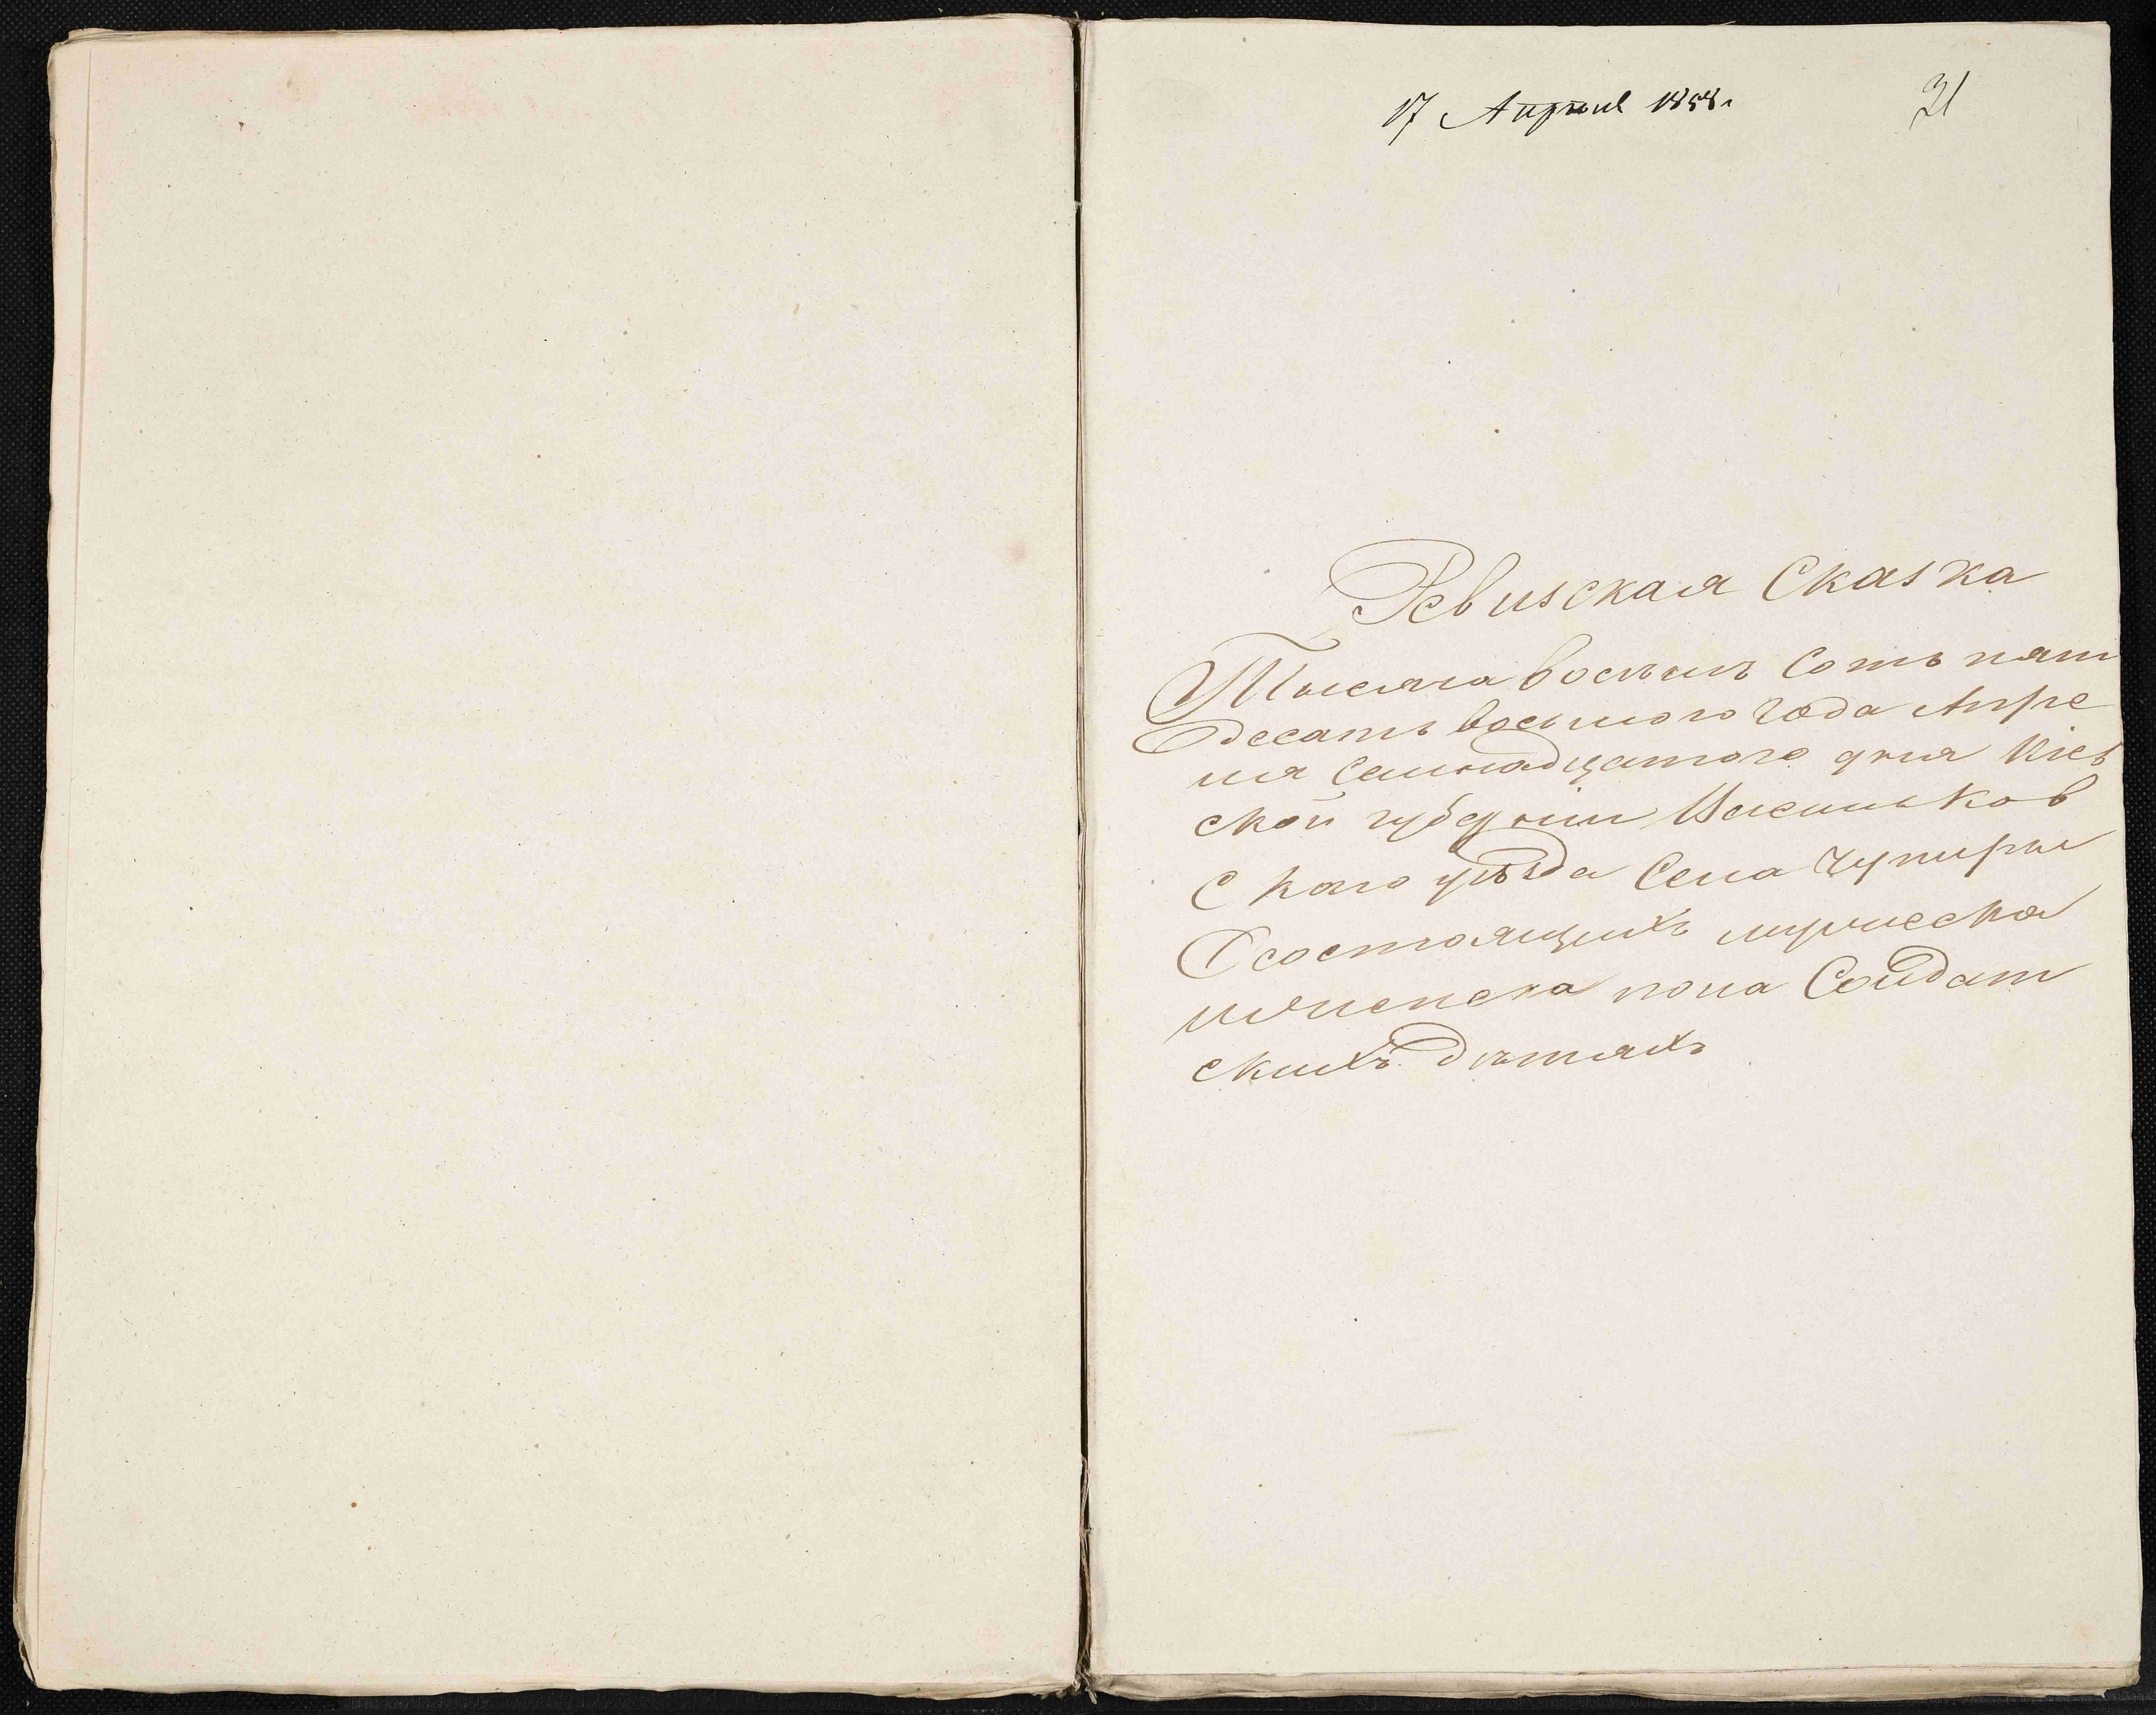 17 Апреля 1858 г.
31
Ревизская Сказка
Тысяча восемь сотъ пят
десятъ восьмого года Апре
ля семнадцатого дня Кіев
ской губерніи Васильков
Ского уѣзда Села Чупиры
О состоящихъ мужеска
и женска пола Солдат
скихъ дѣтяхъ